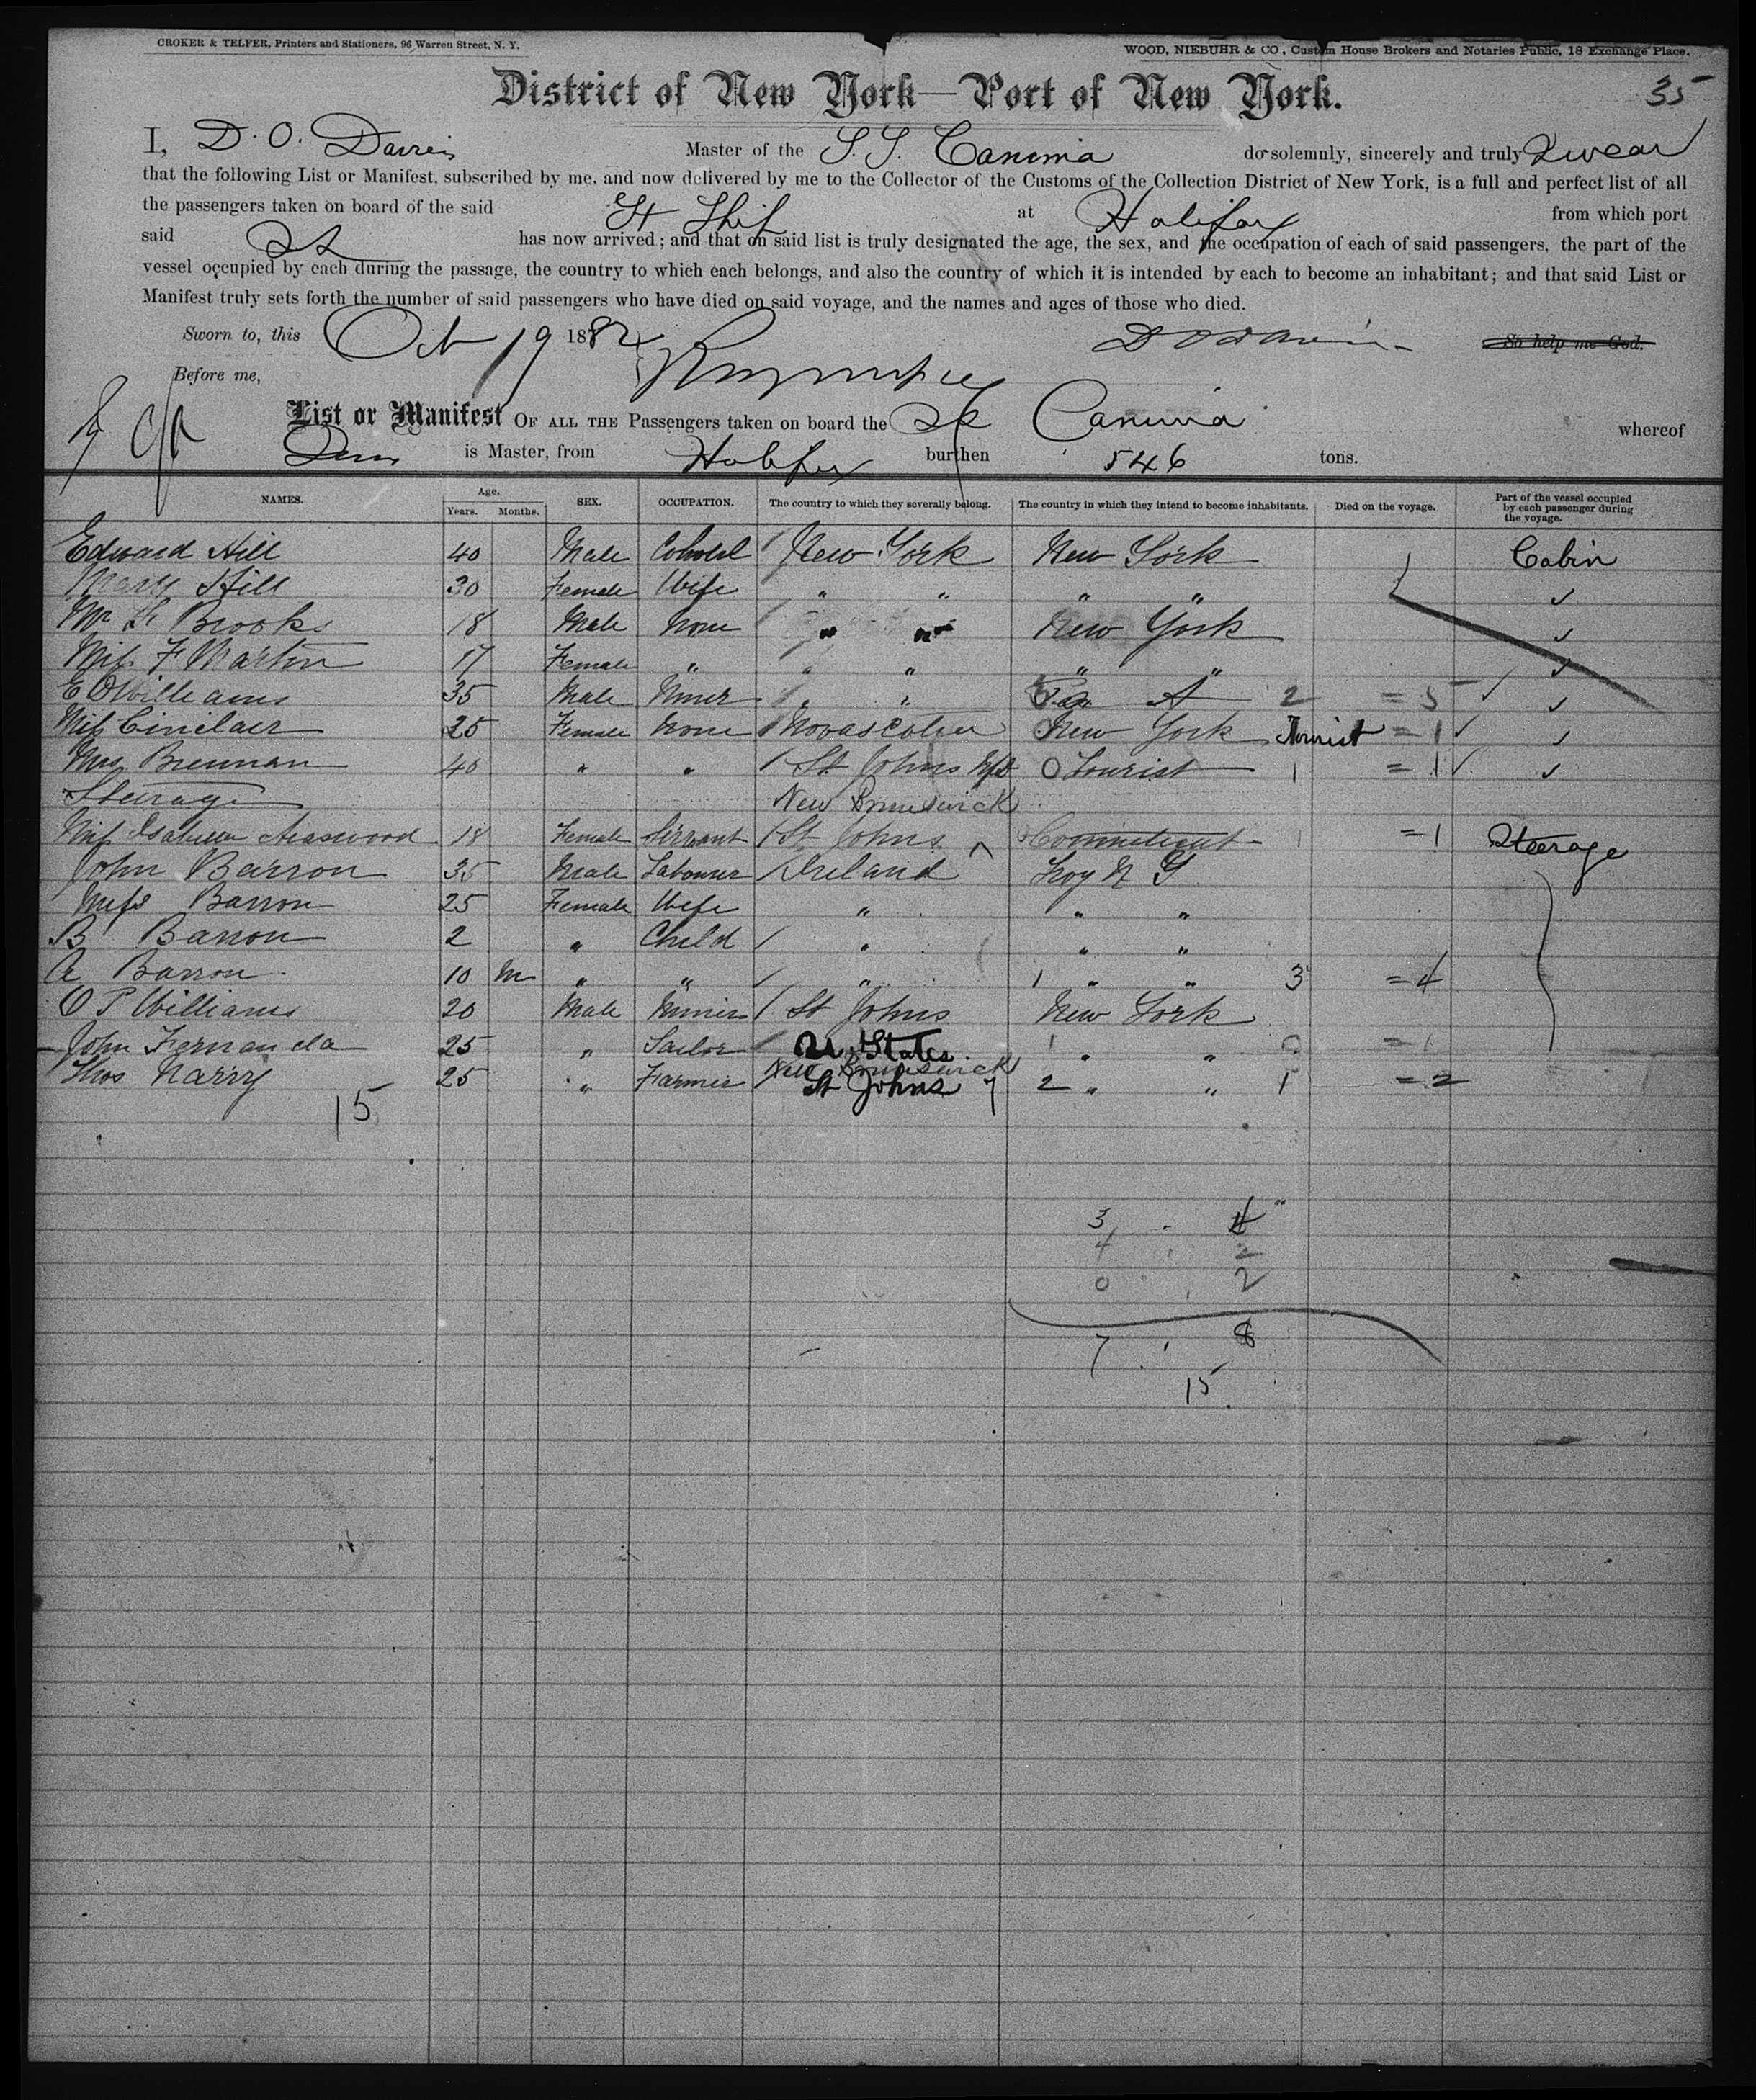 CROKER & TELFER, Printers and Stationers, 96 Warren Street, N. Y.
WOOD, NIEBUHR & CO., Custom House Brokers and Notaries Public, 18 Exchange Place.
District of New York—Port of New York.
35
I, D. O. Master of the S.S. Canima do solemnly, sincerely and truly Swear
that the following List or Manifest, subscribed by me, and now delivered by me to the Collector of the Customs of the Collection District of New York, is a full and perfect list of all
the passengers taken on board of the said St Ship at Halifax from which port
said SS has now arrived; and that on said list is truly designated the age, the sex, and the occupation of each of said passengers, the part of the
vessel occupied by each during the passage, the country to which each belongs, and also the country of which it is intended by each to become an inhabitant; and that said List or
Manifest truly sets forth the number of said passengers who have died on said voyage, and the names and ages of those who died.
Sworn to, this Oct 19 1882 So help me God.
Before me,
List or Manifest OF ALL THE Passengers taken on board the SS Canima whereof
is Master, from Halifax burthen 546 tons.
NAMES. Age. Years. Months. SEX. OCCUPATION. The country to which they severally belong. The country in which they intend to become inhabitants. Died on the voyage. Part of the vessel occupied by each passenger during the voyage.
Edward Hill 40 Male New York New York Cabin
Mary Hill 30 Female Wife " " " " ✓
Mr Brooks 18 Male None " " New York ✓
Miss F Warton 17 Female " " " " " ✓
E O Williams 35 Male Miner " " 2 = 5 ✓ ✓
Miss Cinclair 25 Female None / Novascotia New York Tourist = 1 ✓ ✓
Mrs Brennan 40 " " / St Johns Nfd O Tourist 1 = 1 ✓ ✓
Steerage New Brunswick
Miss Isabella 18 Female Servant / St Johns ^ Connecticut 1 = 1 Steerage
John Barron 35 Male Labourer / Ireland Troy N Y
Mrs Barron 25 Female Wife " " "
B Barron 2 " Child / " " "
A Barron 10 m " " / " 1 " " 3 = 4
O P Williams 20 Male Miner / St Johns New York
John Fernanda 25 " Sailor / U. States 1 " " 0 = 1
New Brunswick
Thos Narry 25 " Farmer St Johns 7 2 " " 1 = 2
15
3 . 4
4 . 2
0 . 2
7 . 8
15